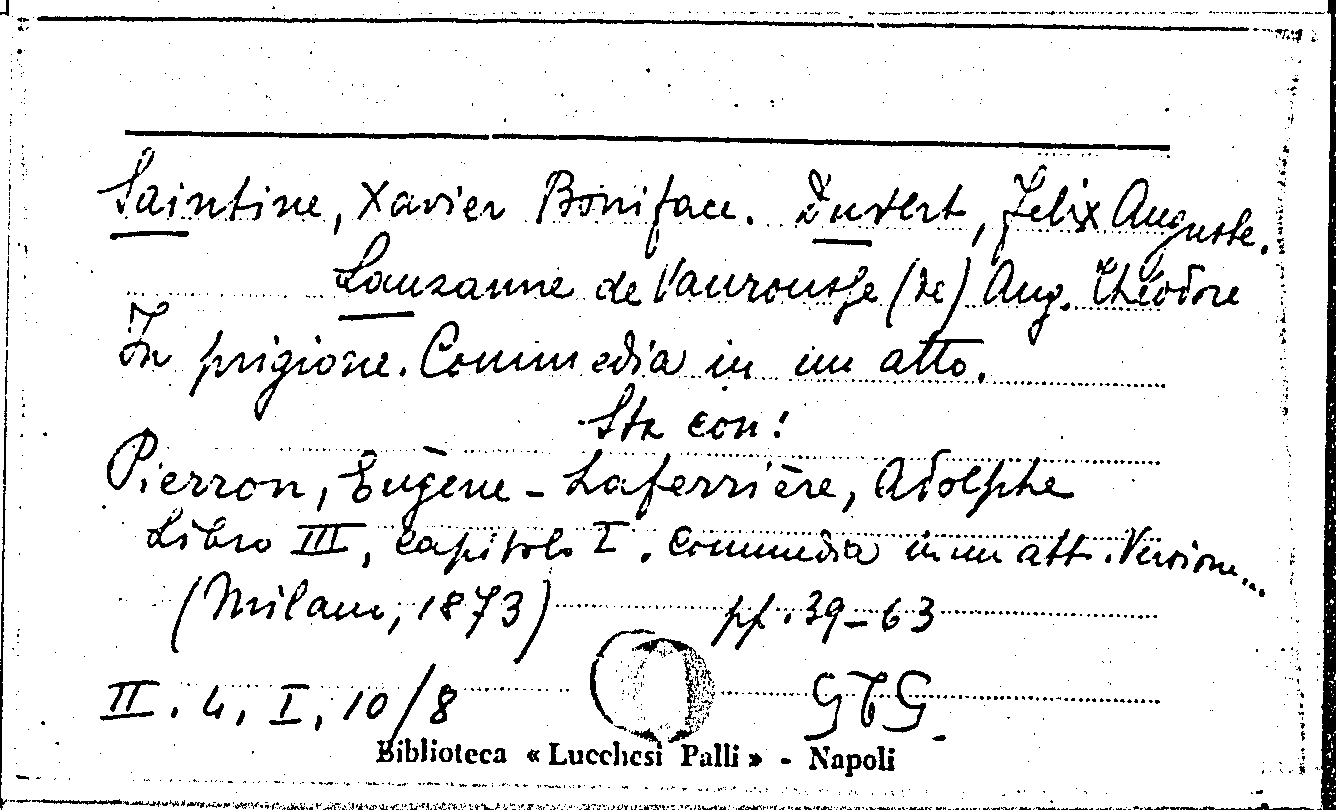 Saintine, Xavier Boniface. Duvert, Felix Auguste.
Lauzanne de Vaurousse (de) Aug. Théodore
In prigione. Commedia in un atto.
Sta con:
Pierron, Eugène - Laferrière, Adolphe
Libro III, capitolo I. Commedia in un att. Version...
(Milano, 1873) pp. 39-63
II. 4, I, 10/8 GTG.
Biblioteca « Lucchesi Palli » - Napoli